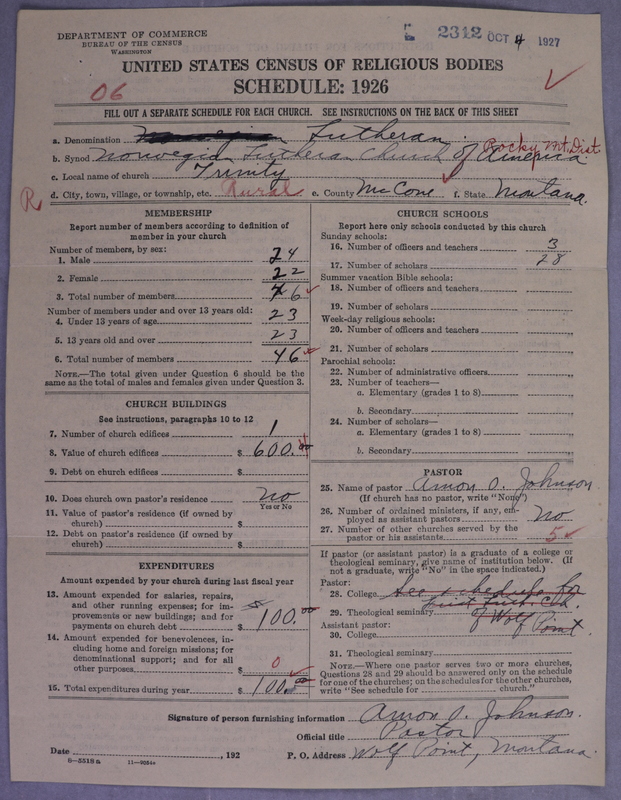 DEPARTMENT OF COMMERCE
BUREAU OF THE CENSUS
WASHINGTON
2312 OCT 4 1927
UNITED STATES CENSUS OF RELIGIOUS BODIES
SCHEDULE: 1926
06
FILL OUT A SEPARATE SCHEDULE FOR EACH CHURCH. SEE INSTRUCTIONS ON THE BACK OF THIS SHEET
a. Denomination Lutheran
Rocky Mt. Dist.
b. Synod Norwegian Lutheran Church of America
c. Local name of church Trinity
R
d. City, town, village, or township, etc. Rural e. County McCone f. State Montana.
MEMBERSHIP
Report number of members according to definition of
member in your church
Number of members, by sex:
1. Male 24
2. Female 22
3. Total number of members 46
Number of members under and over 13 years old:
4. Under 13 years of age 23
5. 13 years old and over 23
6. Total number of members 46
NOTE.—The total given under Question 6 should be the
same as the total of males and females given under Question 3.
CHURCH BUILDINGS
See instructions, paragraphs 10 to 12
7. Number of church edifices 1
8. Value of church edifices $ 600.00
9. Debt on church edifices $
10. Does church own pastor's residence no
Yes or No
11. Value of pastor's residence (if owned by
church) $
12. Debt on pastor's residence (if owned by
church) $
EXPENDITURES
Amount expended by your church during last fiscal year
13. Amount expended for salaries, repairs,
and other running expenses; for im-
provements or new buildings; and for
payments on church debt $ 100.00
14. Amount expended for benevolences, in-
cluding home and foreign missions; for
denominational support; and for all
other purposes $ 0
15. Total expenditures during year $ 100.00
CHURCH SCHOOLS
Report here only schools conducted by this church
Sunday schools:
16. Number of officers and teachers 3
17. Number of scholars 28
Summer vacation Bible schools:
18. Number of officers and teachers
19. Number of scholars
Week-day religious schools:
20. Number of officers and teachers
21. Number of scholars
Parochial schools:
22. Number of administrative officers
23. Number of teachers—
a. Elementary (grades 1 to 8)
b. Secondary
24. Number of scholars—
a. Elementary (grades 1 to 8)
b. Secondary
PASTOR
25. Name of pastor Amon O. Johnson
(If church has no pastor, write "None")
26. Number of ordained ministers, if any, em-
ployed as assistant pastors No
27. Number of other churches served by the
pastor or his assistants 5
If pastor (or assistant pastor) is a graduate of a college or
theological seminary, give name of institution below. (If
not a graduate, write "No" in the space indicated.)
Pastor:
28. College See schedule for
First Luth. Ch.
29. Theological seminary of Wolf
Assistant pastor: Point
30. College
31. Theological seminary
NOTE.—Where one pastor serves two or more churches,
Questions 28 and 29 should be answered only on the schedule
for one of the churches; on the schedules for the other churches,
write "See schedule for church."
Signature of person furnishing information Amon O. Johnson.
Official title Pastor
Date , 192
P. O. Address Wolf Point, Montana.